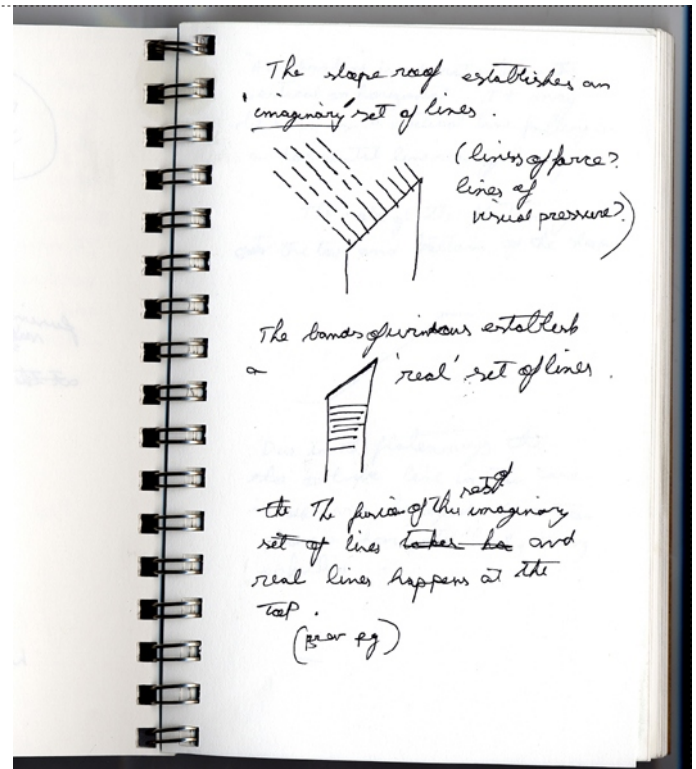 The slope roof establishes an
'imaginary' set of lines.
(lines of force?
lines of
visual pressure?)
The bands of windows establish
a 'real' set of lines.
the The fusion of this set of imaginary
set of lines takes and
real lines happens at the
top.
(prev pg)